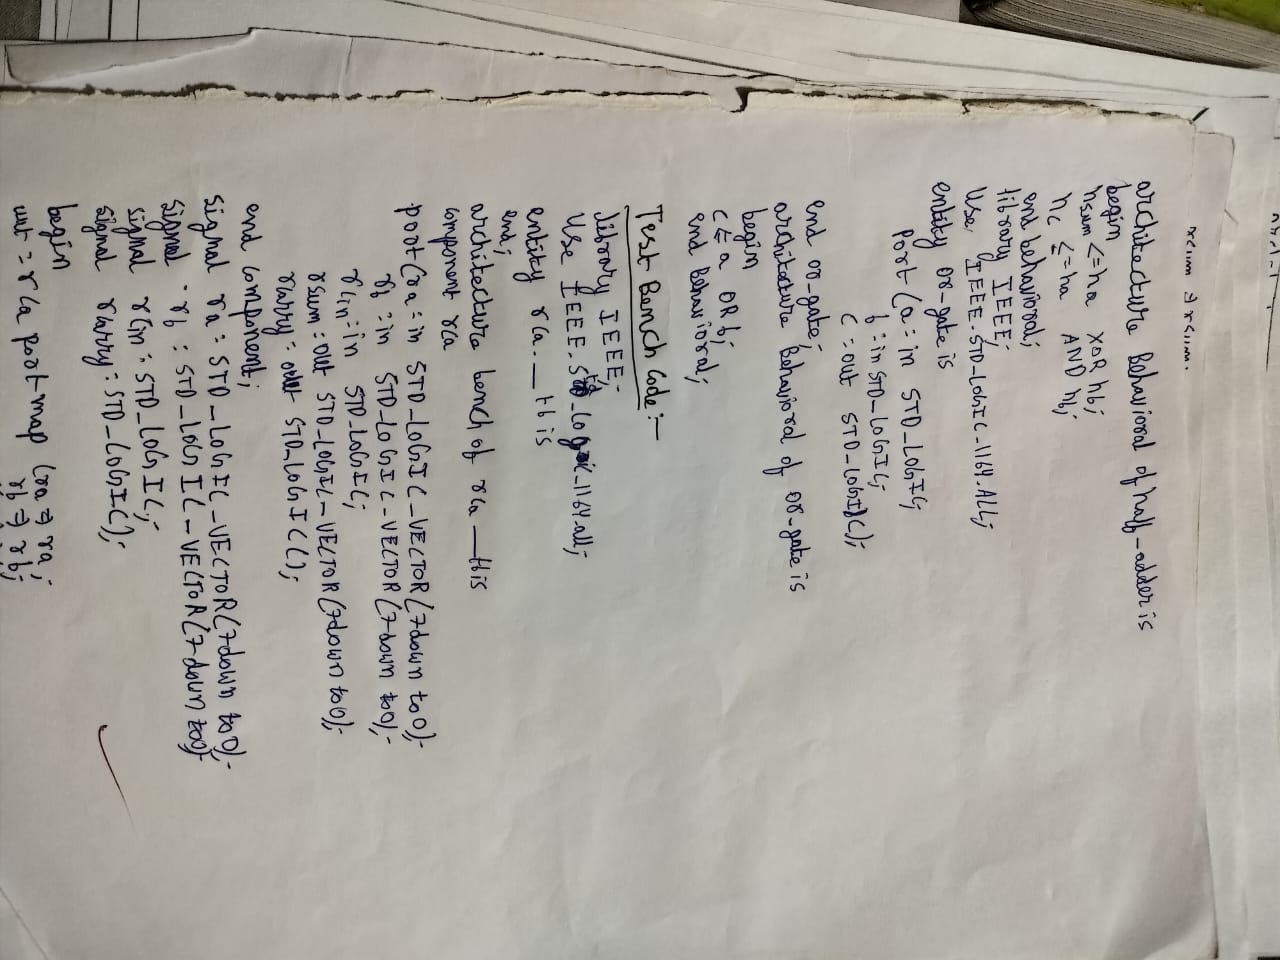 rsum => rsum.
architecture Behavioral of half-adder is
begin
hsum <=ha XOR hb;
hc <=ha AND hb;
end behavioral;
library IEEE;
Use IEEE.STD-LOGIC-1164.ALL;
entity or-gate is
Port (a : in STD_LOGIC;
b : in STD-LOGIC;
c : out STD-LOGIC);
end or-gate;
architecture Behavioral of or-gate is
begin
c <= a OR b;
end Behavioral;
Test Bench Code :-
library IEEE;
Use IEEE.Std_logic_1164.all;
entity rca._tb is
end;
architecture bench of rca _tb is
component rca
port (ra : in STD_LOGIC_VECTOR (7 down to 0);
rb : in STD_LOGIC-VECTOR (7 down to 0);
rcin : in STD_LOGIC;
rsum : out STD_LOGIC-VECTOR (7down to 0);
rcarry : out STD_LOGIC();
end component;
signal ra : STD_LOGIC_VECTOR (7down to 0);
signal rb : STD_LOGIC-VECTOR (7 down to 0)
signal rcin : STD_LOGIC;
signal rcarry : STD_LOGIC);
begin
uut : rca port map (ra => ra ;
rb => rb;